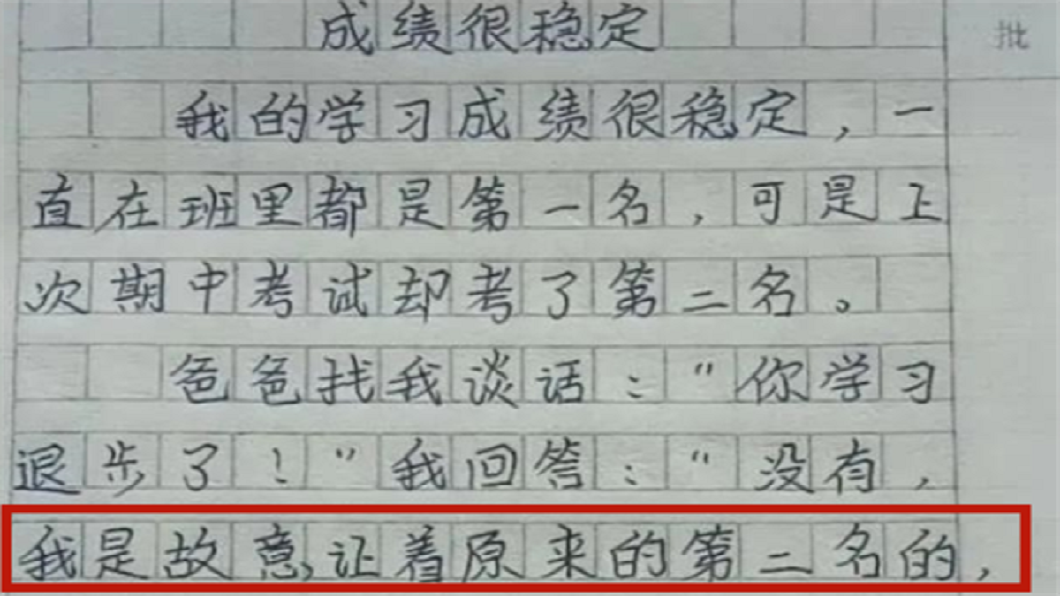 批
成绩很稳定
我的学习成绩很稳定，一
直在班里都是第一名，可是上
次期中考试却考了第二名。
爸爸找我谈话："你学习
退步了！"我回答："没有，
我是故意让着原来的第二名的，